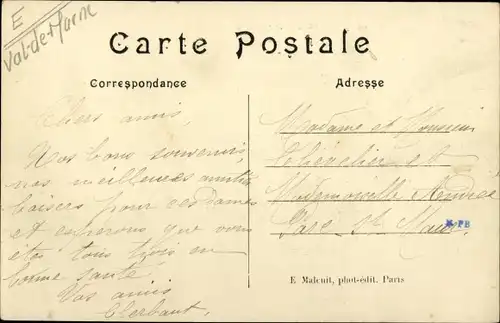 E
Val-de-Marne
Carte Postale
Correspondance
Adresse
Chers amis,
Nos bons souvenirs,
nos meilleures amitiés
baisers pour ces dames
et espérons que vous
êtes tous trois en
bonne santé.
Vos amis
Clerbaut.
Madame et Monsieur
Chevalier et
Mademoiselle Andrée
Parc St Maur
E Malcuit, phot-édit. Paris